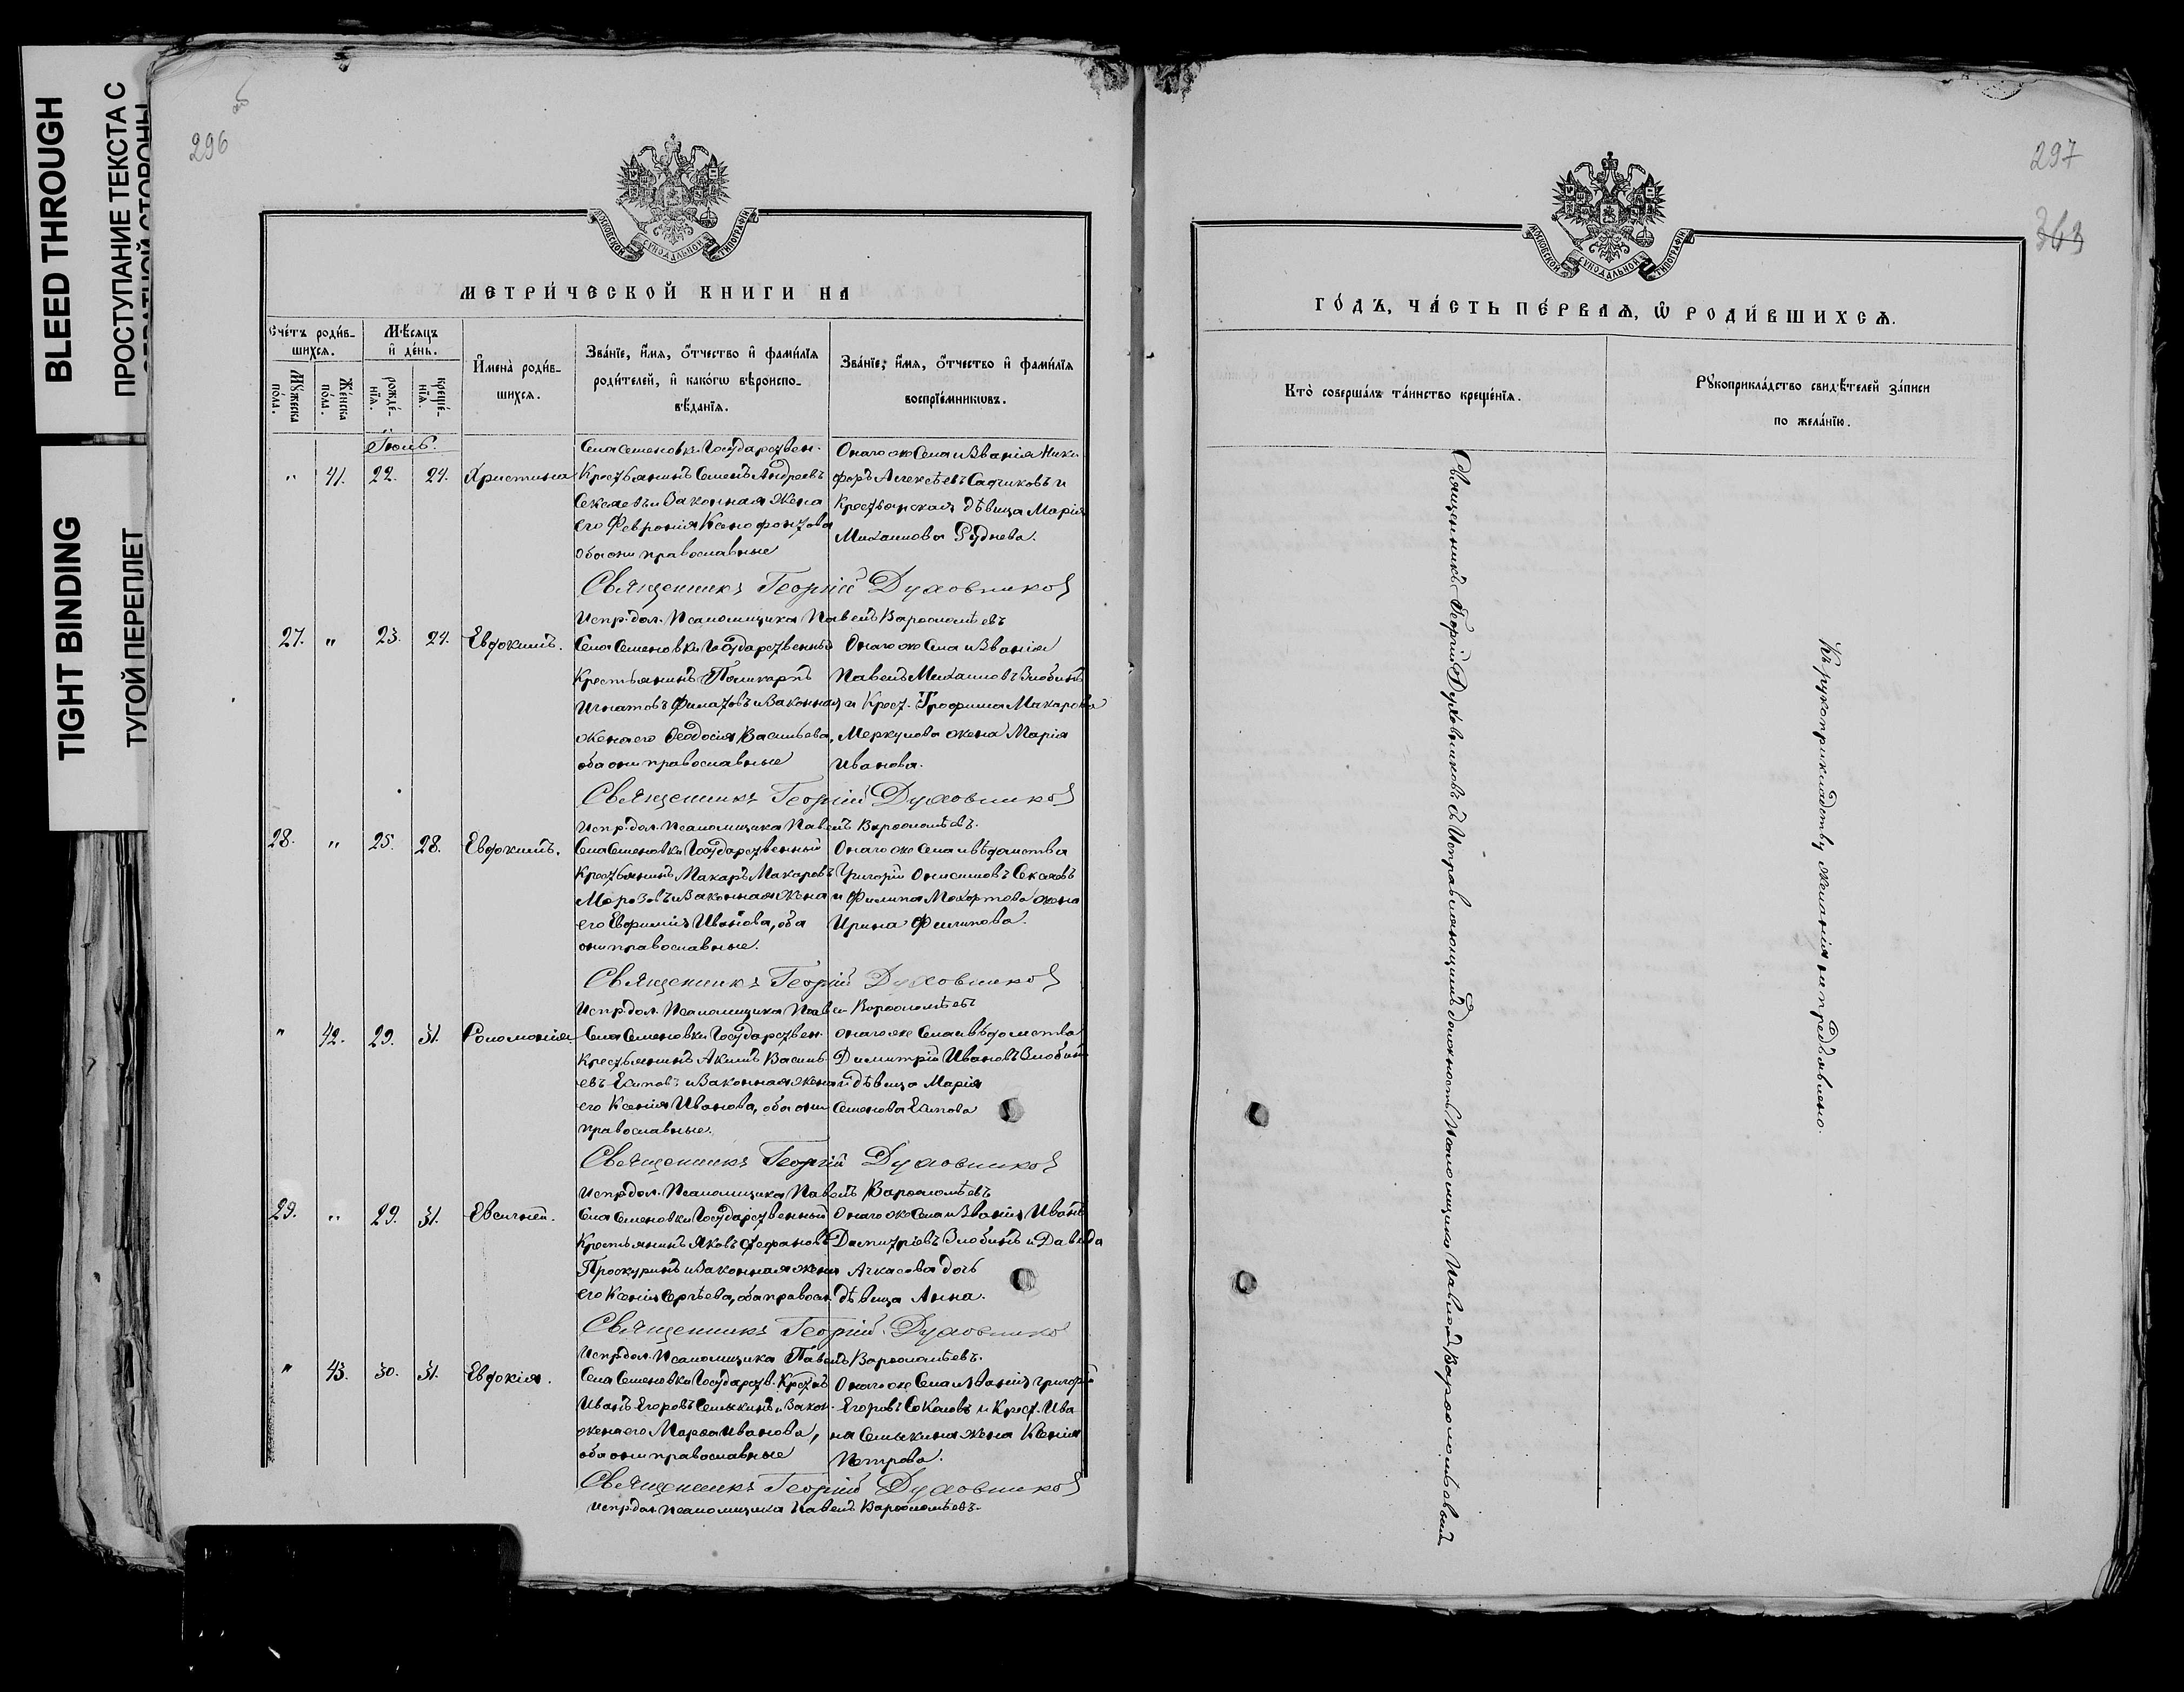 BLEED THROUGH
ПРОСТУПАНИЕ ТЕКСТА С
ОБРАТНОЙ СТОРОНЫ
TIGHT BINDING
ТУГОЙ ПЕРЕПЛЕТ
296
МОСКОВСКОЙ СѴНОДАЛЬНОЙ ТИПОГРАФІИ
МЕТРИ́ЧЕСКОЙ КНИГИ НА
Сче́тъ роди́в-
шихсѧ.
Мѣ́сѧцъ
и҆ де́нь.
Мꙋ́жеска по́ла.
Же́нска по́ла.
рожде́-нїѧ.
креще́-нїѧ.
И҆мена̀ роди́в-
шихсѧ.
Зва́нїе, и҆́мѧ, ѻ҆́тчество и҆ фами́лїѧ
роди́телей, и҆ како́гѡ вѣроиспо-
вѣ́данїѧ.
Зва́нїе, и҆́мѧ, ѻ҆́тчество и҆ фами́лїѧ
воспрїе́мникѡвъ.
Іюль.
" 41. 22. 24. Христина
Села Семеновки Государствен.
Крестьянинъ Семенъ Андреевъ
Секлаевъ и Законная Жена
его Феврония Ксенофонтова
оба они православные
Онаго же Села и Звания Ники
форъ Алексѣевъ Садчиковъ и
Крестьянская дѣвица Марія
Михаилова Руднева.
Священникъ Георгій Духовников
Испр. дол. Псаломщика Павелъ Варѳоломѣевъ
27. " 23. 24. Евдокимъ.
Села Семеновки Государственный
Крестьянинъ Поликарпъ
Игнатовъ Филатовъ и Законная
жена его Ѳеодосія Васильева,
оба они православные
Онаго же Села и Званія
Павелъ Михаиловъ Злобинъ
и Крест. Трофима Макарова
Меркулова жена Марія
Иванова.
Священникъ Георгій Духовников
Испр. дол. Псаломщика Павелъ Варѳоломѣевъ.
28. " 25. 28. Евдокимъ.
Села Семеновки Государственный
Крестьянинъ Макаръ Макаровъ
Морозовъ и Законная Жена
его Евфимія Иванова, оба
они православные.
Онаго же Села и вѣдомства
Григорій Онисимовъ Секлаевъ
и Филипа Мохортова жена
Ирина Филипова.
Священникъ Георгій Духовников
Испр. дол. Псаломщика Павел Варѳоломѣевъ
" 42. 29. 31. Соломонія.
Села Семеновки Государствен.
Крестьянинъ Акимъ Василь
евъ Ехиповъ и Законная жена
его Ксенія Иванова, оба они
православные.
онаго же Села и вѣдомства
Димитрій Ивановъ Злобинъ
и дѣвица Марія
Семенова Ехипова
Священникъ Георгій Духовников
Испр. дол. Псаломщика Павелъ Варѳоломѣевъ
29. " 29. 31. Евсигней.
Села Семеновки Государственный
Крестьянинъ Яковъ Стефановъ
Проскуринъ и Законная жена
его Ксенія Сергѣева, оба правосл.
Онаго же Села и Званія Иванъ
Дмитріевъ Злобинъ и Давыда
Ачкасова дочь
дѣвица Анна.
Священникъ Георгій Духовнико
Испр. дол. Псаломщика Павелъ Варѳоломѣевъ.
" 43. 30. 31. Евдокія.
Села Семеновки Государств. Крестнъ
Иванъ Егоровъ Семыкинъ и Закон.
жена его Марѳа Иванова,
оба они православные
Онаго же Села и Званія Григорій
Егоровъ Соколовъ и Крест. Ива
на Семыкина жена Ксенія
Петрова.
Священникъ Георгій Духовников
Испр. дол. Псаломщика Павелъ Варѳоломѣевъ.
297
363
МОСКОВСКОЙ СѴНОДАЛЬНОЙ ТИПОГРАФІИ
ГО́ДЪ, ЧА́СТЬ ПЕ́РВАѦ, Ѡ҆ РОДИ́ВШИХСѦ.
Кто̀ соверша́лъ та́инство креще́нїѧ.
Рꙋкоприкла́дство свидѣ́телей за́писи
по жела́нїю.
Священникъ Георгій Духовниковъ съ Исправляющимъ должность Псаломщика Павломъ Варѳоломѣевымъ
Къ рукоприкладству желанія не предъявлено.